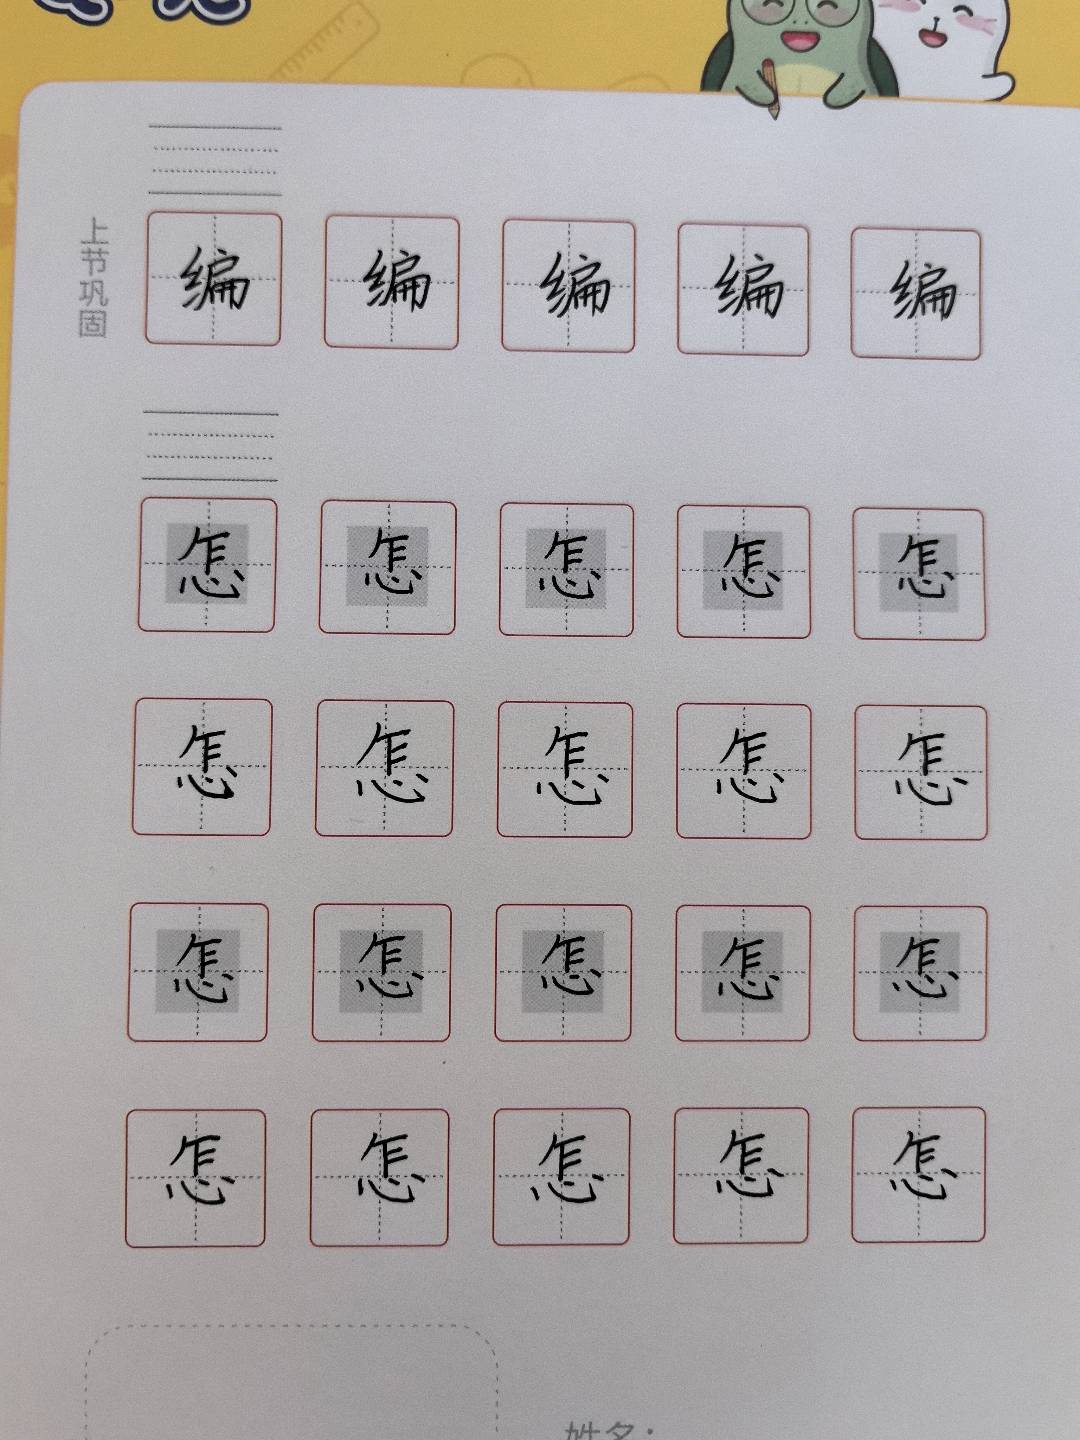 上节巩固
编 编 编 编 编
怎 怎 怎 怎 怎
怎 怎 怎 怎 怎
怎 怎 怎 怎 怎
怎 怎 怎 怎 怎
姓名：